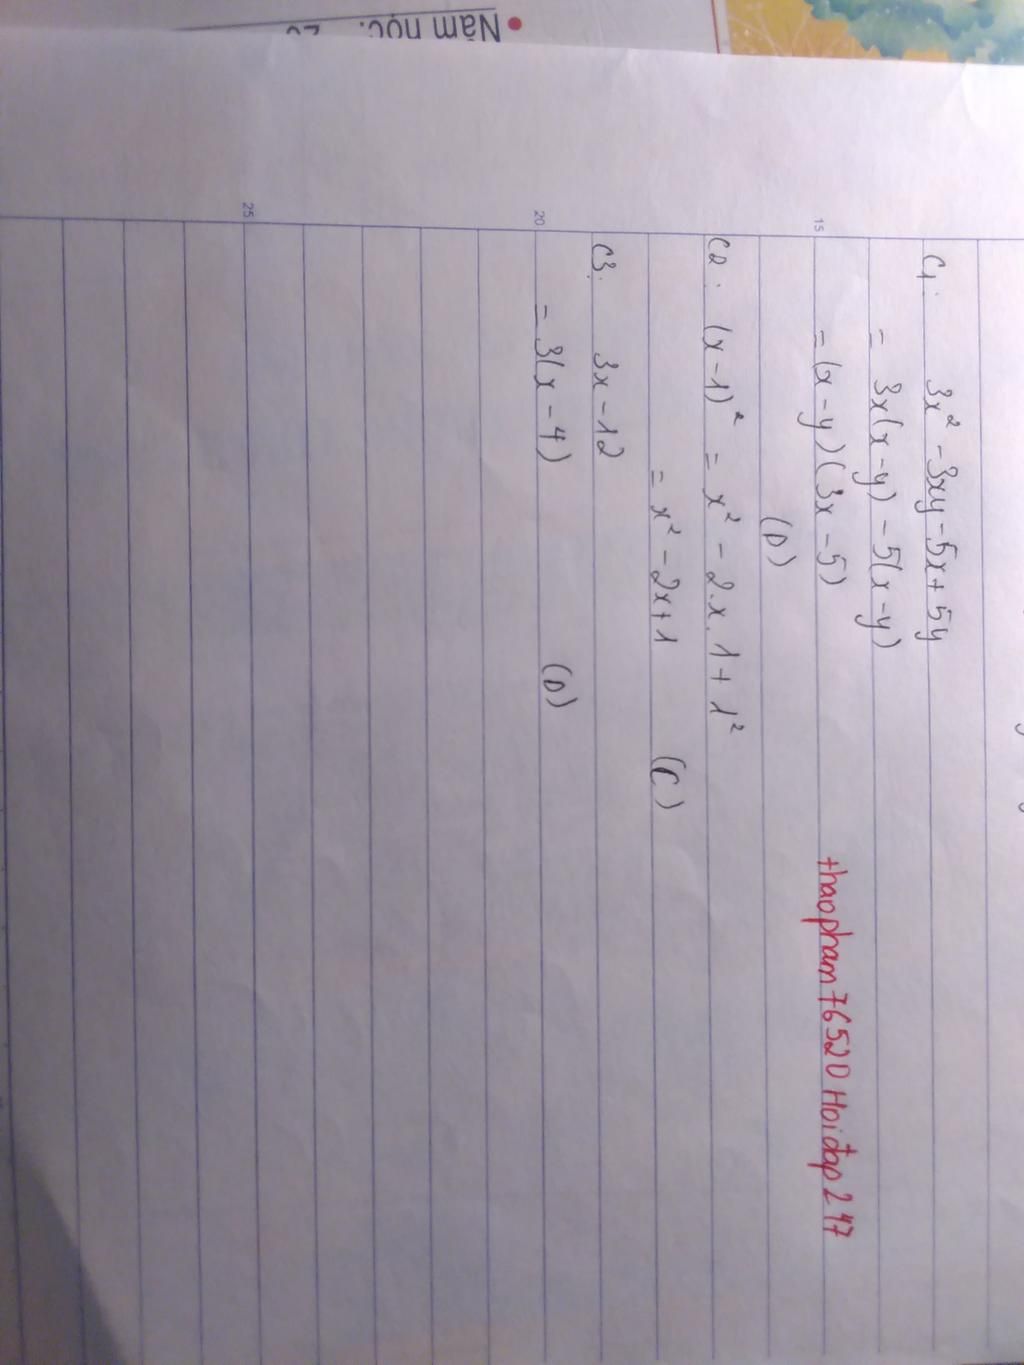 Năm học:
15
20
25
C1: 3x² - 3xy - 5x + 5y
= 3x(x - y) - 5(x - y)
= (x - y)(3x - 5)
(D)
C2: (x - 1)² = x² - 2.x.1 + 1²
= x² - 2x + 1 (C)
C3: 3x - 12
= 3(x - 4) (D)
thaopham76520 Hoidap247